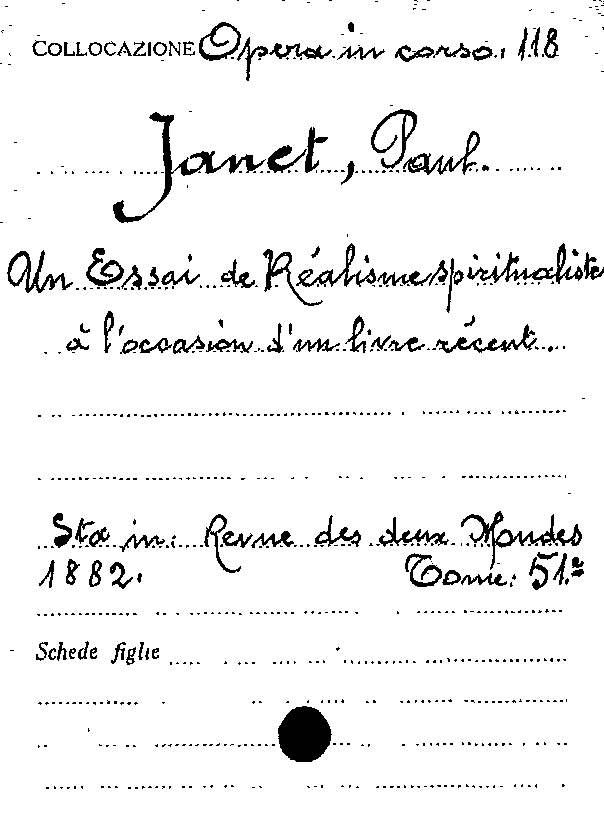 COLLOCAZIONE Opera in corso: 118
Janet, Paul.
Un Essai de Réalisme spiritualiste
à l'occasion d'un livre récent.
Sta in: Revue des deux Mondes
1882. Tome: 51.e
Schede figlie